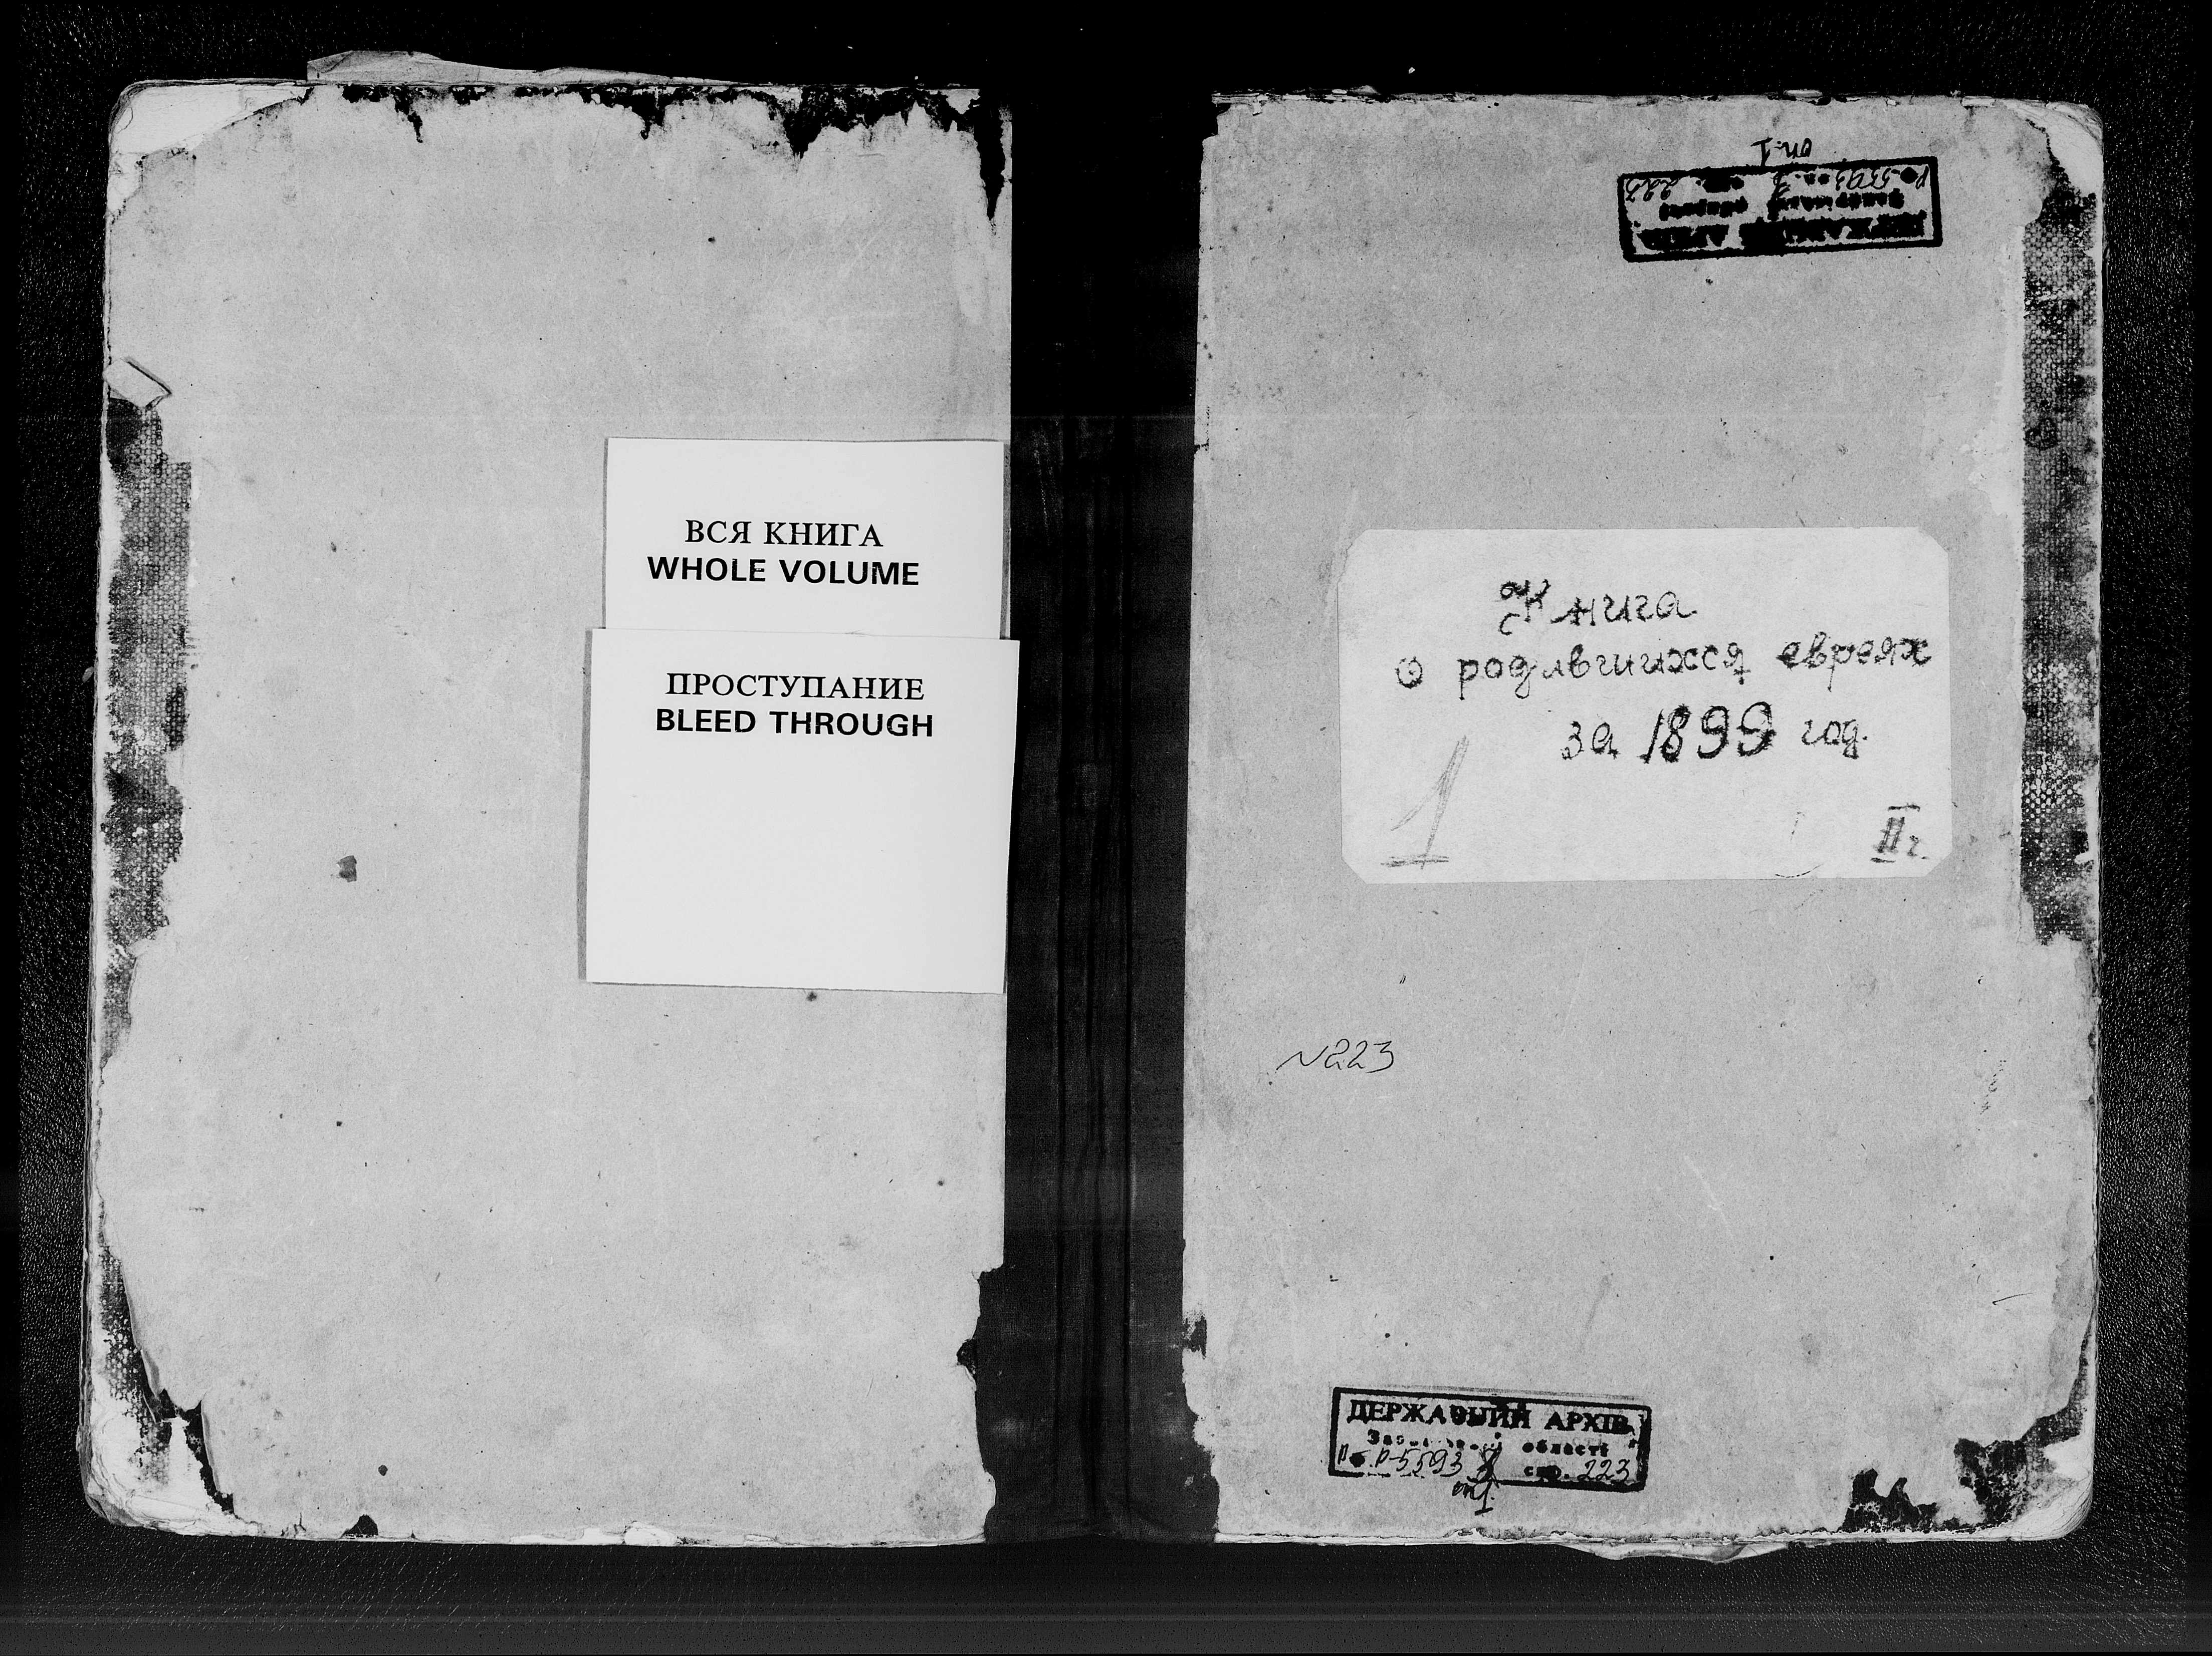 ВСЯ КНИГА
WHOLE VOLUME
ПРОСТУПАНИЕ
BLEED THROUGH
оп. 1
Книга
о родившихся евреях
за 1899 год.
1
II г.
N223
ДЕРЖАВНИЙ АРХІВ
області
Р-5593 спр. 223
оп 1